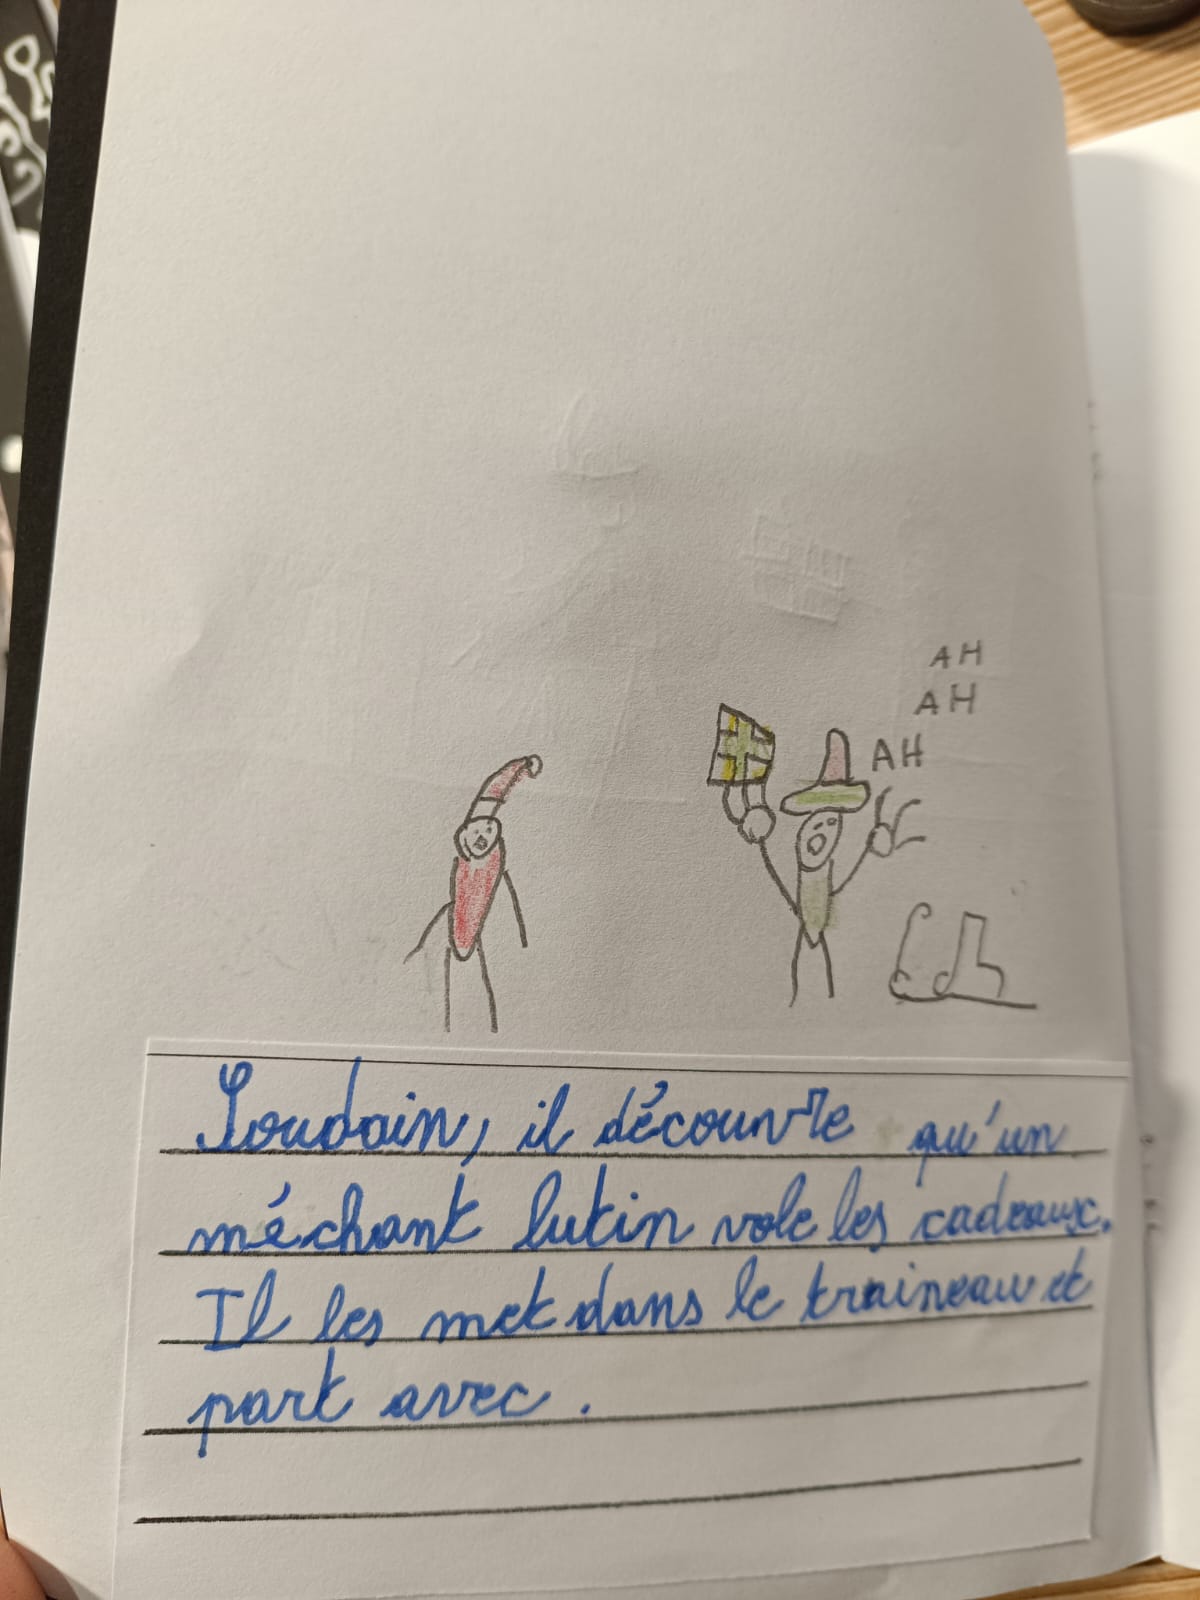 AH
AH
AH
Soudain, il découvre qu'un
méchant lutin vole les cadeaux.
Il les met dans le traineau et
part avec.